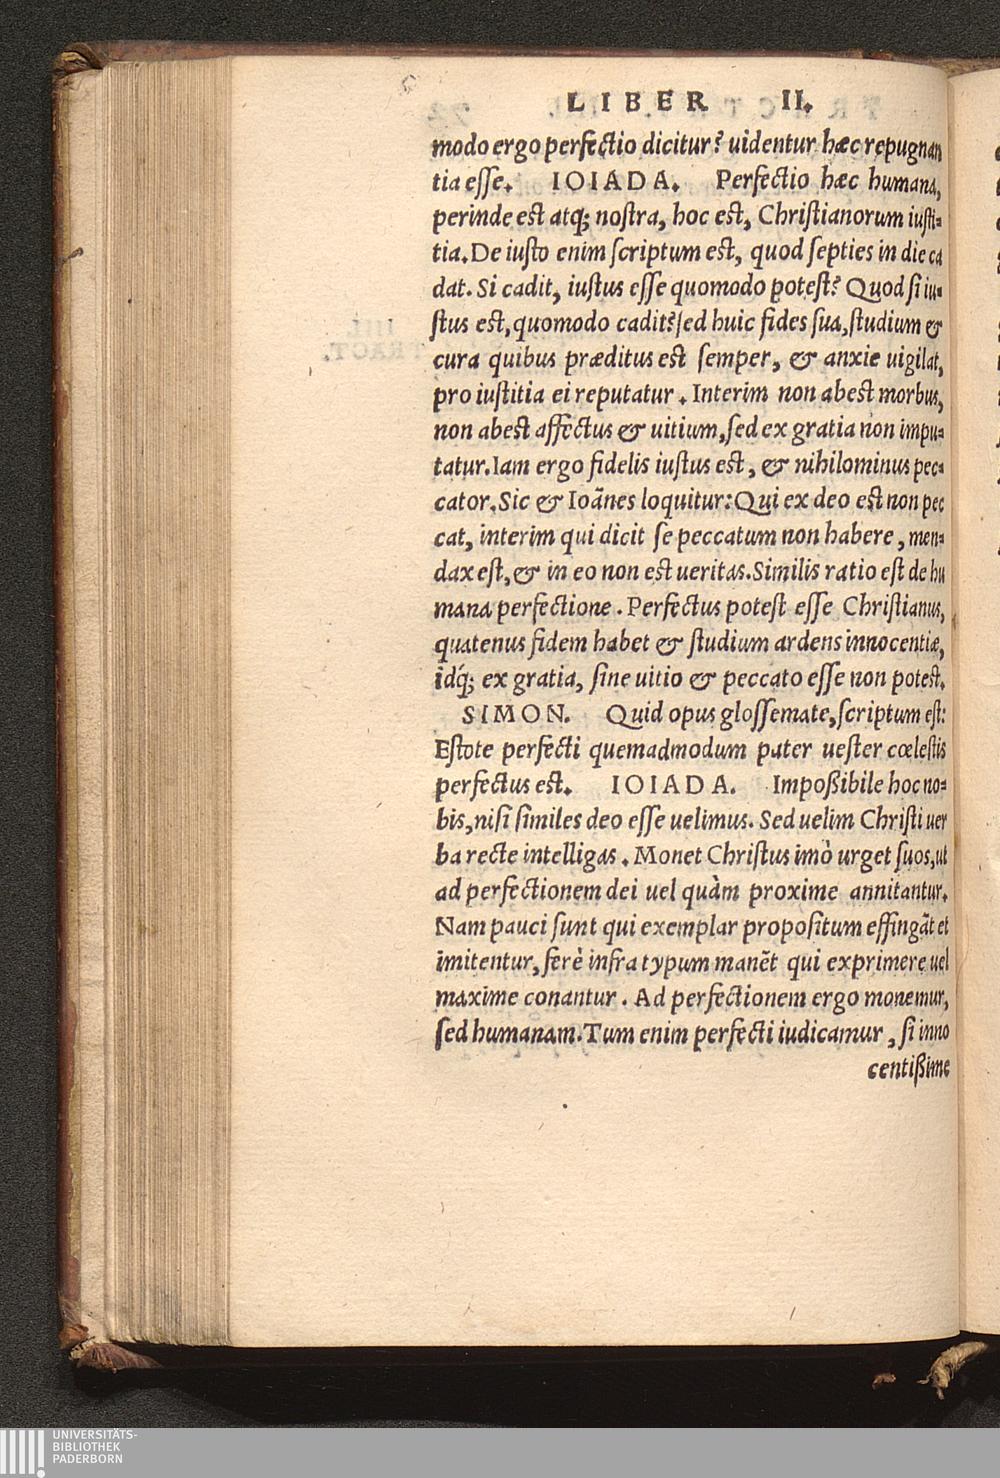 LIBER II.
modo ergo perfectio dicitur? uidentur hæc repugnan
tia esse. IOIADA. Perfectio hæc humana,
perinde est atq; nostra, hoc est, Christianorum iusti=
tia. De iusto enim scriptum est, quod septies in die ca
dat. Si cadit, iustus esse quomodo potest? Quod si iu=
stus est, quomodo cadit? sed huic fides sua, studium &
cura quibus præditus est semper, & anxie uigilat,
pro iustitia ei reputatur. Interim non abest morbus,
non abest affectus & uitium, sed ex gratia non impu=
tatur. Iam ergo fidelis iustus est, & nihilominus pec=
cator. Sic & Ioãnes loquitur: Qui ex deo est non pec
cat, interim qui dicit se peccatum non habere, men=
dax est, & in eo non est ueritas. Similis ratio est de hu
mana perfectione. Perfectus potest esse Christianus,
quatenus fidem habet & studium ardens innocentiæ,
idq́; ex gratia, sine uitio & peccato esse non potest.
SIMON. Quid opus glossemate, scriptum est:
Estote perfecti quemadmodum pater uester cœlestis
perfectus est. IOIADA. Impoßibile hoc no=
bis, nisi similes deo esse uelimus. Sed uelim Christi uer
ba recte intelligas. Monet Christus imò urget suos, ut
ad perfectionem dei uel quàm proxime annitantur.
Nam pauci sunt qui exemplar propositum effingãt et
imitentur, ferè infra typum manẽt qui exprimere uel
maxime conantur. Ad perfectionem ergo monemur,
sed humanam. Tum enim perfecti iudicamur, si inno
centißime
UNIVERSITÄTS-
BIBLIOTHEK
PADERBORN